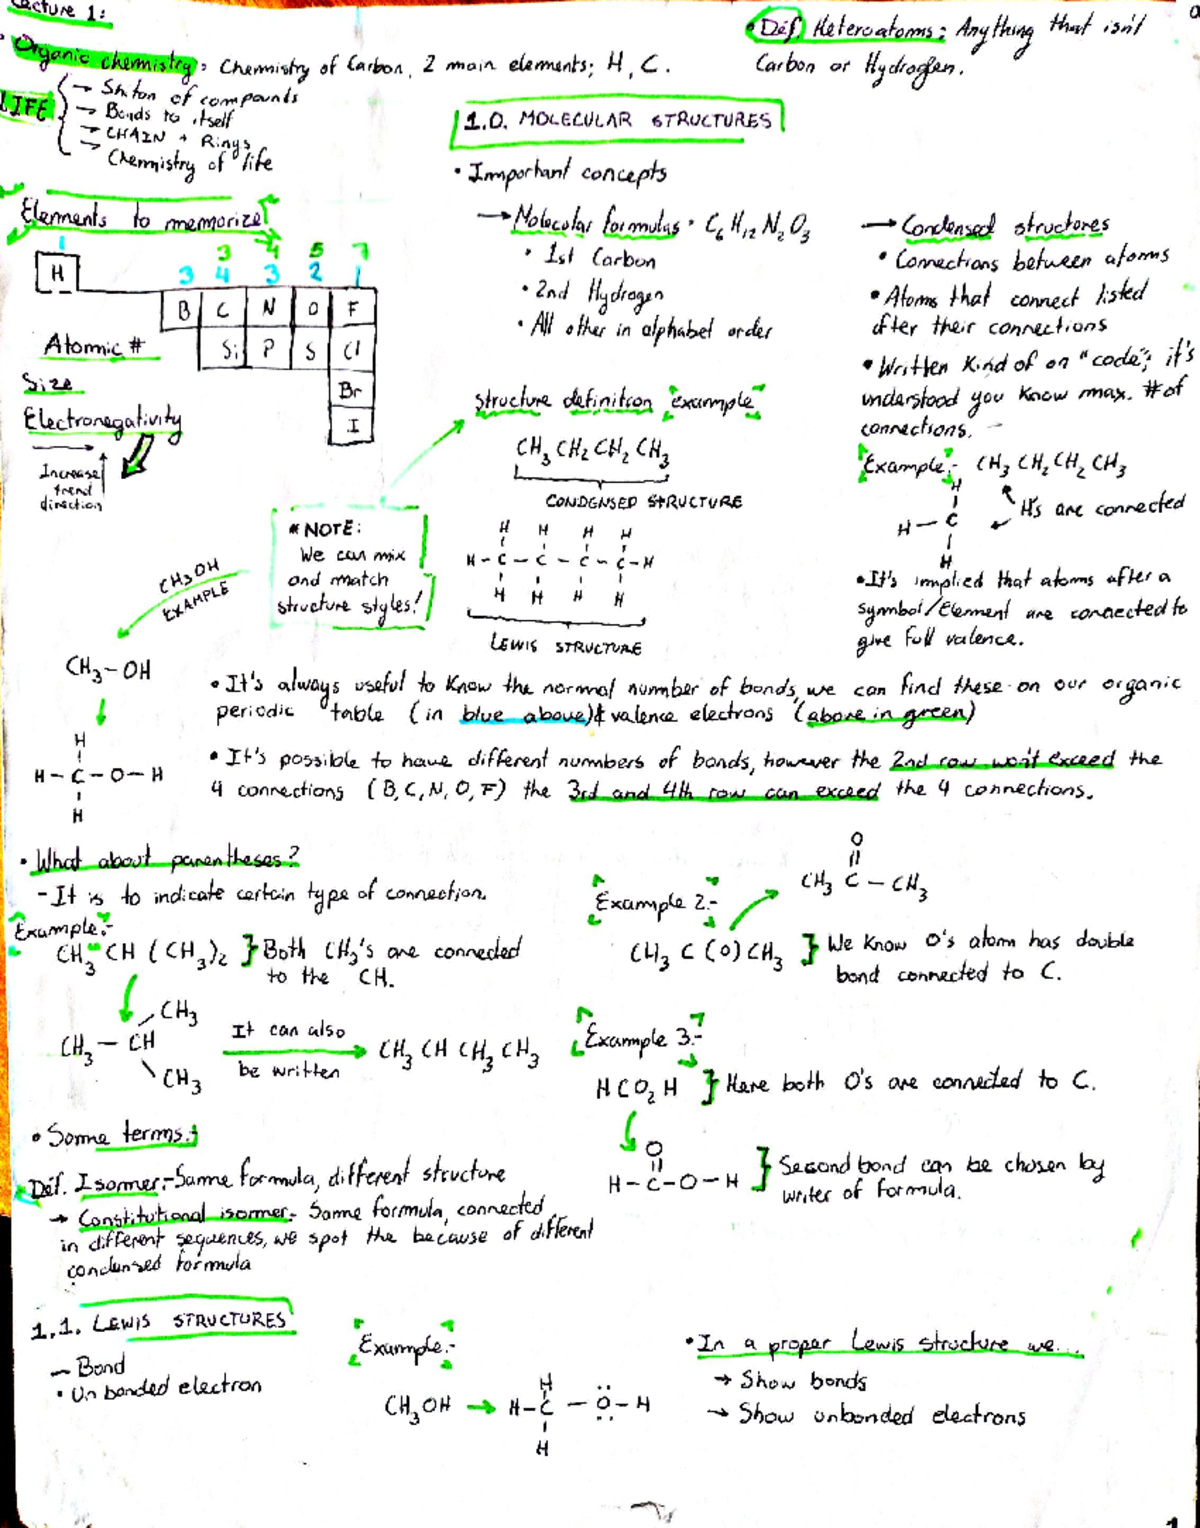 Lecture 1:
• Organic chemistry: Chemistry of Carbon, 2 main elements; H, C.
LIFE
→ Shiton of compounds
→ Bonds to itself
→ CHAIN + Rings
→ Chemistry of life
• Def. Heteroatoms: Anything that isn't
Carbon or Hydrogen.
Elements to memorize
1
3 4 5 7
3 4 3 2 1
H
B C N O F
Si P S Cl
Br
I
Atomic #
Size
Electronegativity
Increase
trend
direction
1.0. MOLECULAR STRUCTURES
• Important concepts
→ Molecular formulas • C₆H₁₂N₂O₃
• 1st Carbon
• 2nd Hydrogen
• All other in alphabet order
→ Condensed structores
• Connections between atoms
• Atoms that connect listed
after their connections
• Written kind of on "code"; it's
understood you know max. # of
connections.
Example:- CH₃ CH₂ CH₂ CH₃
H
H - C
H
H's are connected
• It's implied that atoms after a
symbol/Element are connected to
give full valence.
structure definition example
CH₃ CH₂ CH₂ CH₃
CONDENSED STRUCTURE
H H H H
H - C - C - C - C - H
H H H H
LEWIS STRUCTURE
* NOTE:
We can mix
and match
structure styles!
CH3OH
EXAMPLE
CH₃ - OH
H
H - C - O - H
H
• It's always useful to know the normal number of bonds, we can find these on our organic
periodic table (in blue above) & valence electrons (above in green)
• It's possible to have different numbers of bonds, however the 2nd row won't exceed the
4 connections (B, C, N, O, F) the 3rd and 4th row can exceed the 4 connections.
• What about parentheses?
- It is to indicate certain type of connection.
Example:-
CH₃ CH (CH₃)₂ } Both CH₃'s are connected
to the CH.
CH₃
CH₃ - CH
CH₃
It can also
be written
CH₃ CH CH₃ CH₃
Example 2:-
O
CH₃ C - CH₃
CH₃ C (O) CH₃ } We know O's atom has double
bond connected to C.
Example 3:-
HCO₂H } Here both O's are connected to C.
O
H - C - O - H } Second bond can be chosen by
writer of formula.
• Some terms:
Def. Isomer:- Same formula, different structure
→ Constitutional isomer:- Same formula, connected
in different sequences, we spot the because of different
condensed formula
1.1. LEWIS STRUCTURES
— Bond
• Unbonded electron
Example:-
CH₃OH → H - C - O - H
H
H
• In a proper Lewis structure we...
→ Show bonds
→ Show unbonded electrons
1